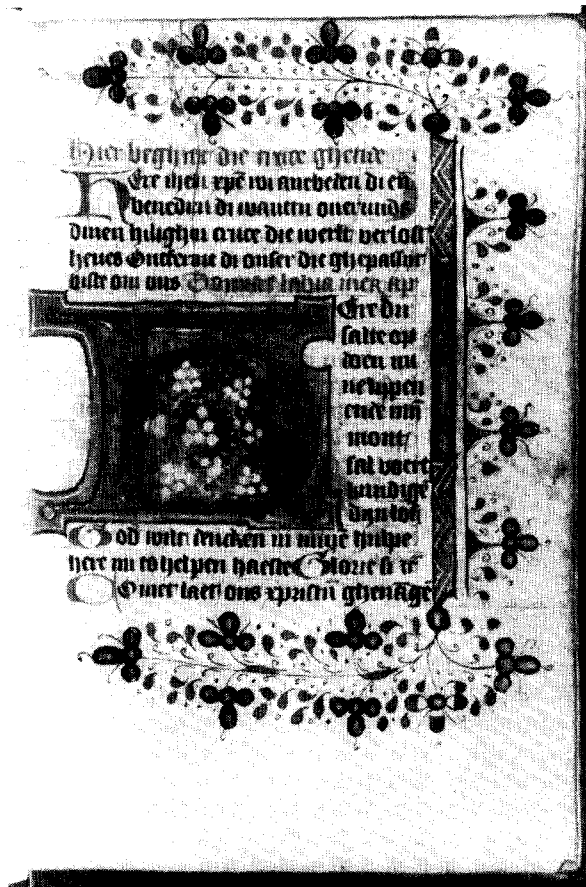 Hier beghint die cruce ghetide
Ere ihesu xpe wi anebeden di en
benedien di wantu ouermids
dinen hilighen cruce die werlt verlost
heues Ontferme di onser die ghepassijt
biste om ons Domine labia mea ap
Ere du
salte op
doen mi
ne lippen
ende mijn
mont
sal voert
kundige
dijn lof
God wilt dencken in mijn hulpe
here mi to helpen haeste Glorie si
Comet laet ons xpristum ghenadge